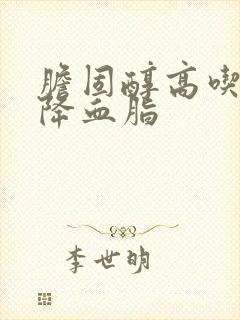 膽固醇高喫
降血脂
李世明